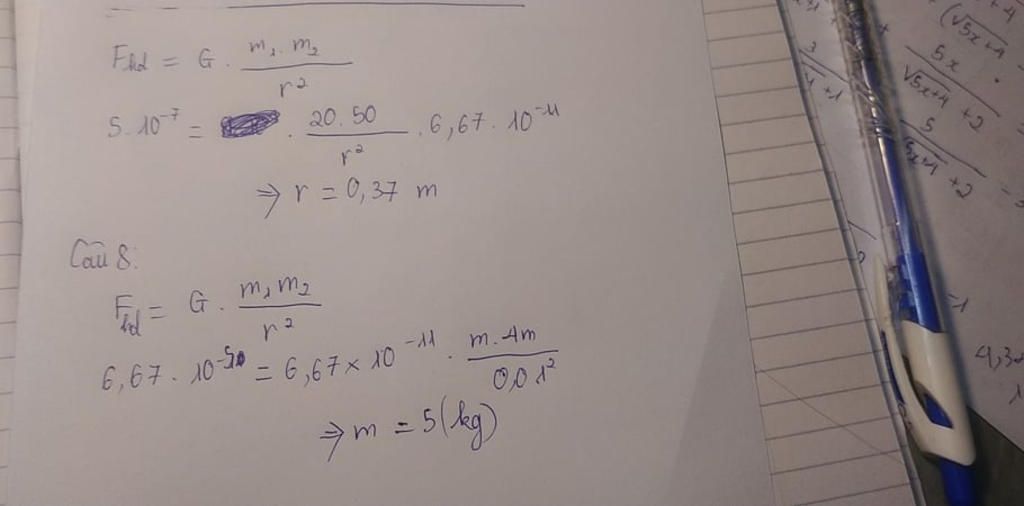 Fhd = G . m₁. m₂ / r²
5.10⁻⁷ = . 20.50 / r² . 6,67. 10⁻¹¹
⇒ r = 0,37 m
Câu 8:
Fhd = G . m₁m₂ / r²
= 6,67 × 10⁻¹¹ . m.4m / 0,01²
⇒ m = 5 (kg)
(√5x+4
5x / √5x+4 + 2
5 / 5x+4 + 2